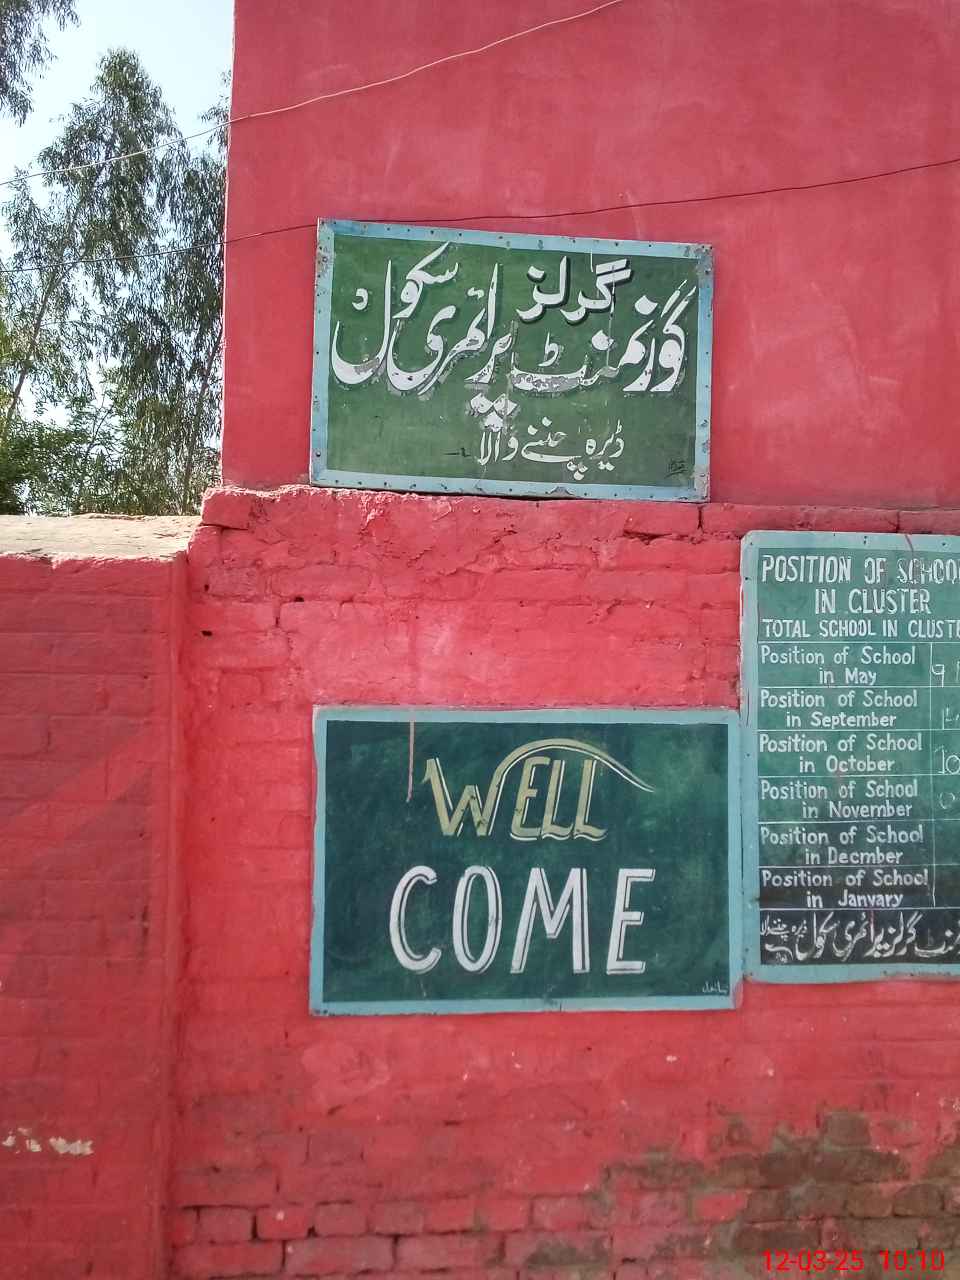 گورنمنٹ گرلز پرائمری سکول
ڈیرہ چننے والا
WELL
COME
POSITION OF SCHOO
IN CLUSTER
TOTAL SCHOOL IN CLUSTE
Position of School
in May 9
Position of School
in September
Position of School
in October 10
Position of School
in November 0
Position of School
in Decmber
Position of School
in Janvary
منٹ گرلز پرائمری سکول ڈیرہ چننے والا
12-03-25 10:10